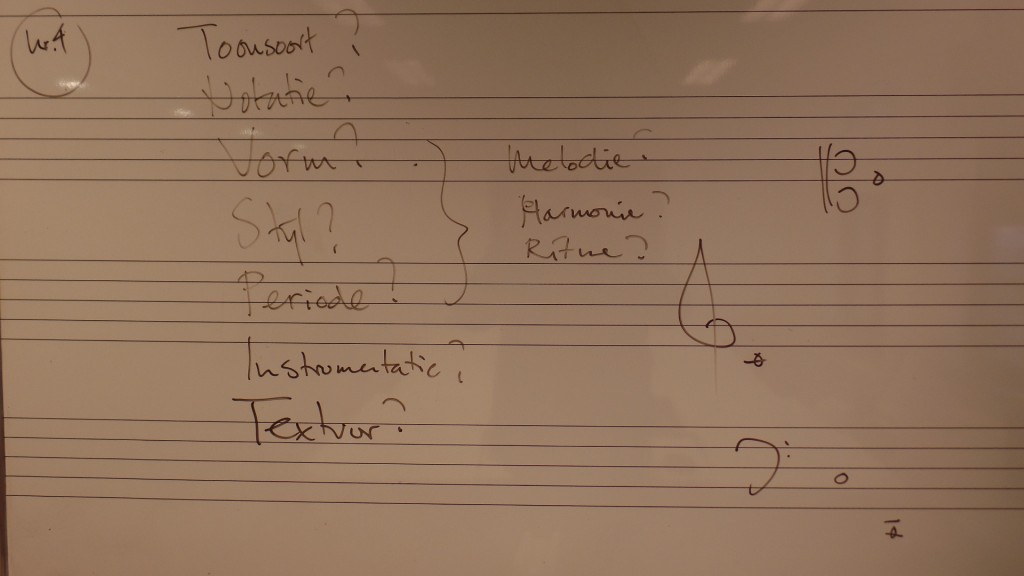 nr. 4
Toonsoort?
Notatie?
Vorm?
Styl?
Periode?
Instrumentatie?
Textuur?
Melodie?
Harmonie?
Ritme?